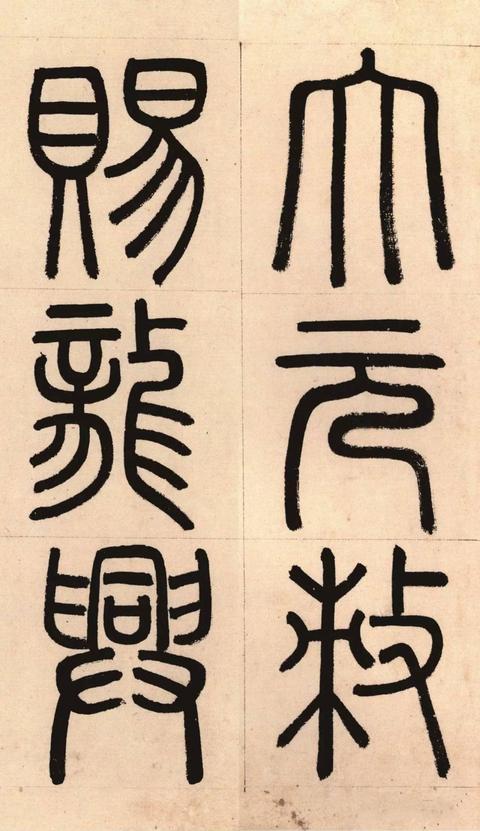 大元敕
賜龍興